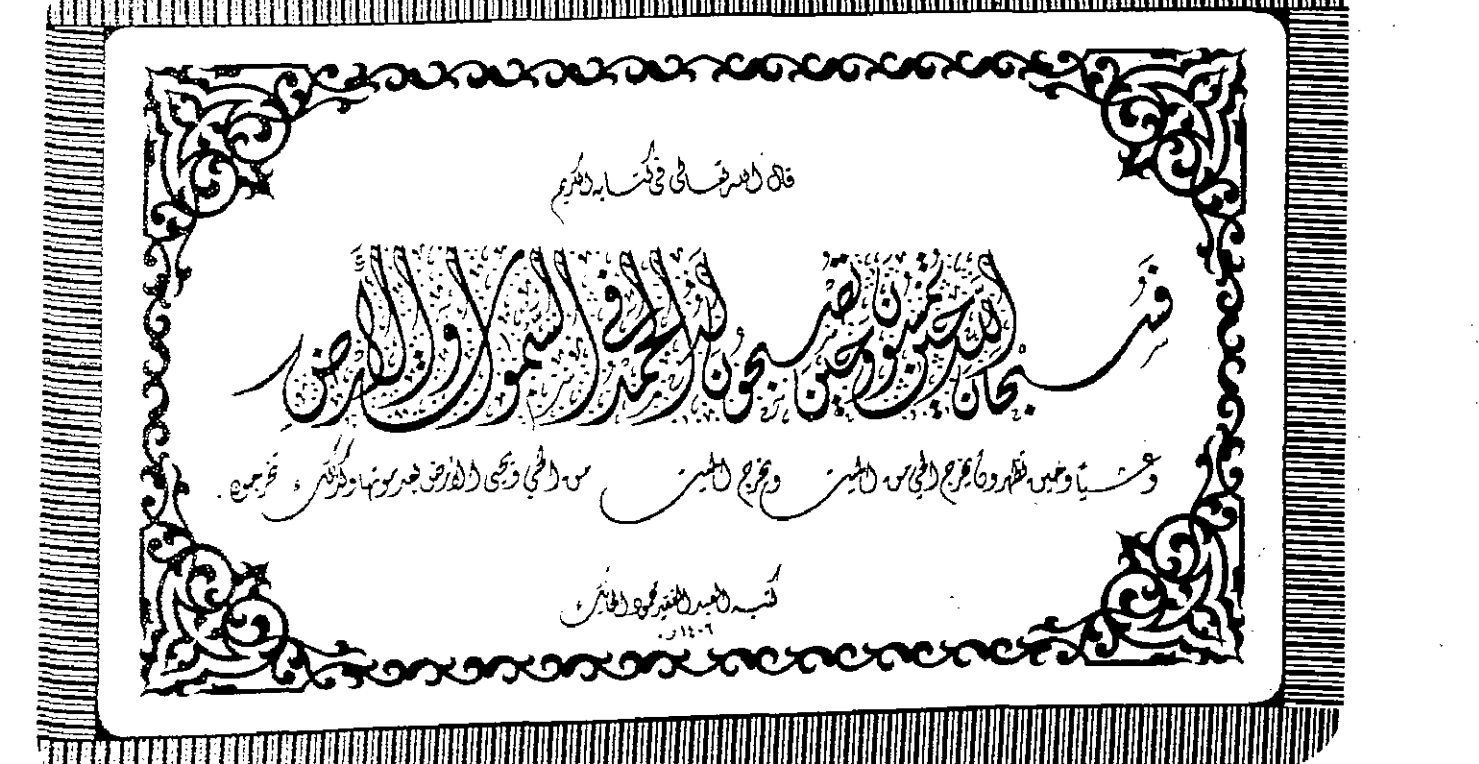 قال الله تعالى في كتابه الكريم
فسبحان الله حين تمسون وحين تصبحون وله الحمد في السموات والأرض
وعشيًا وحين تظهرون يخرج الحي من الميت ويخرج الميت من الحي ويحي الأرض بعد موتها وكذلك تخرجون
كتبه العبد الفقير محمود
١٤٠٦